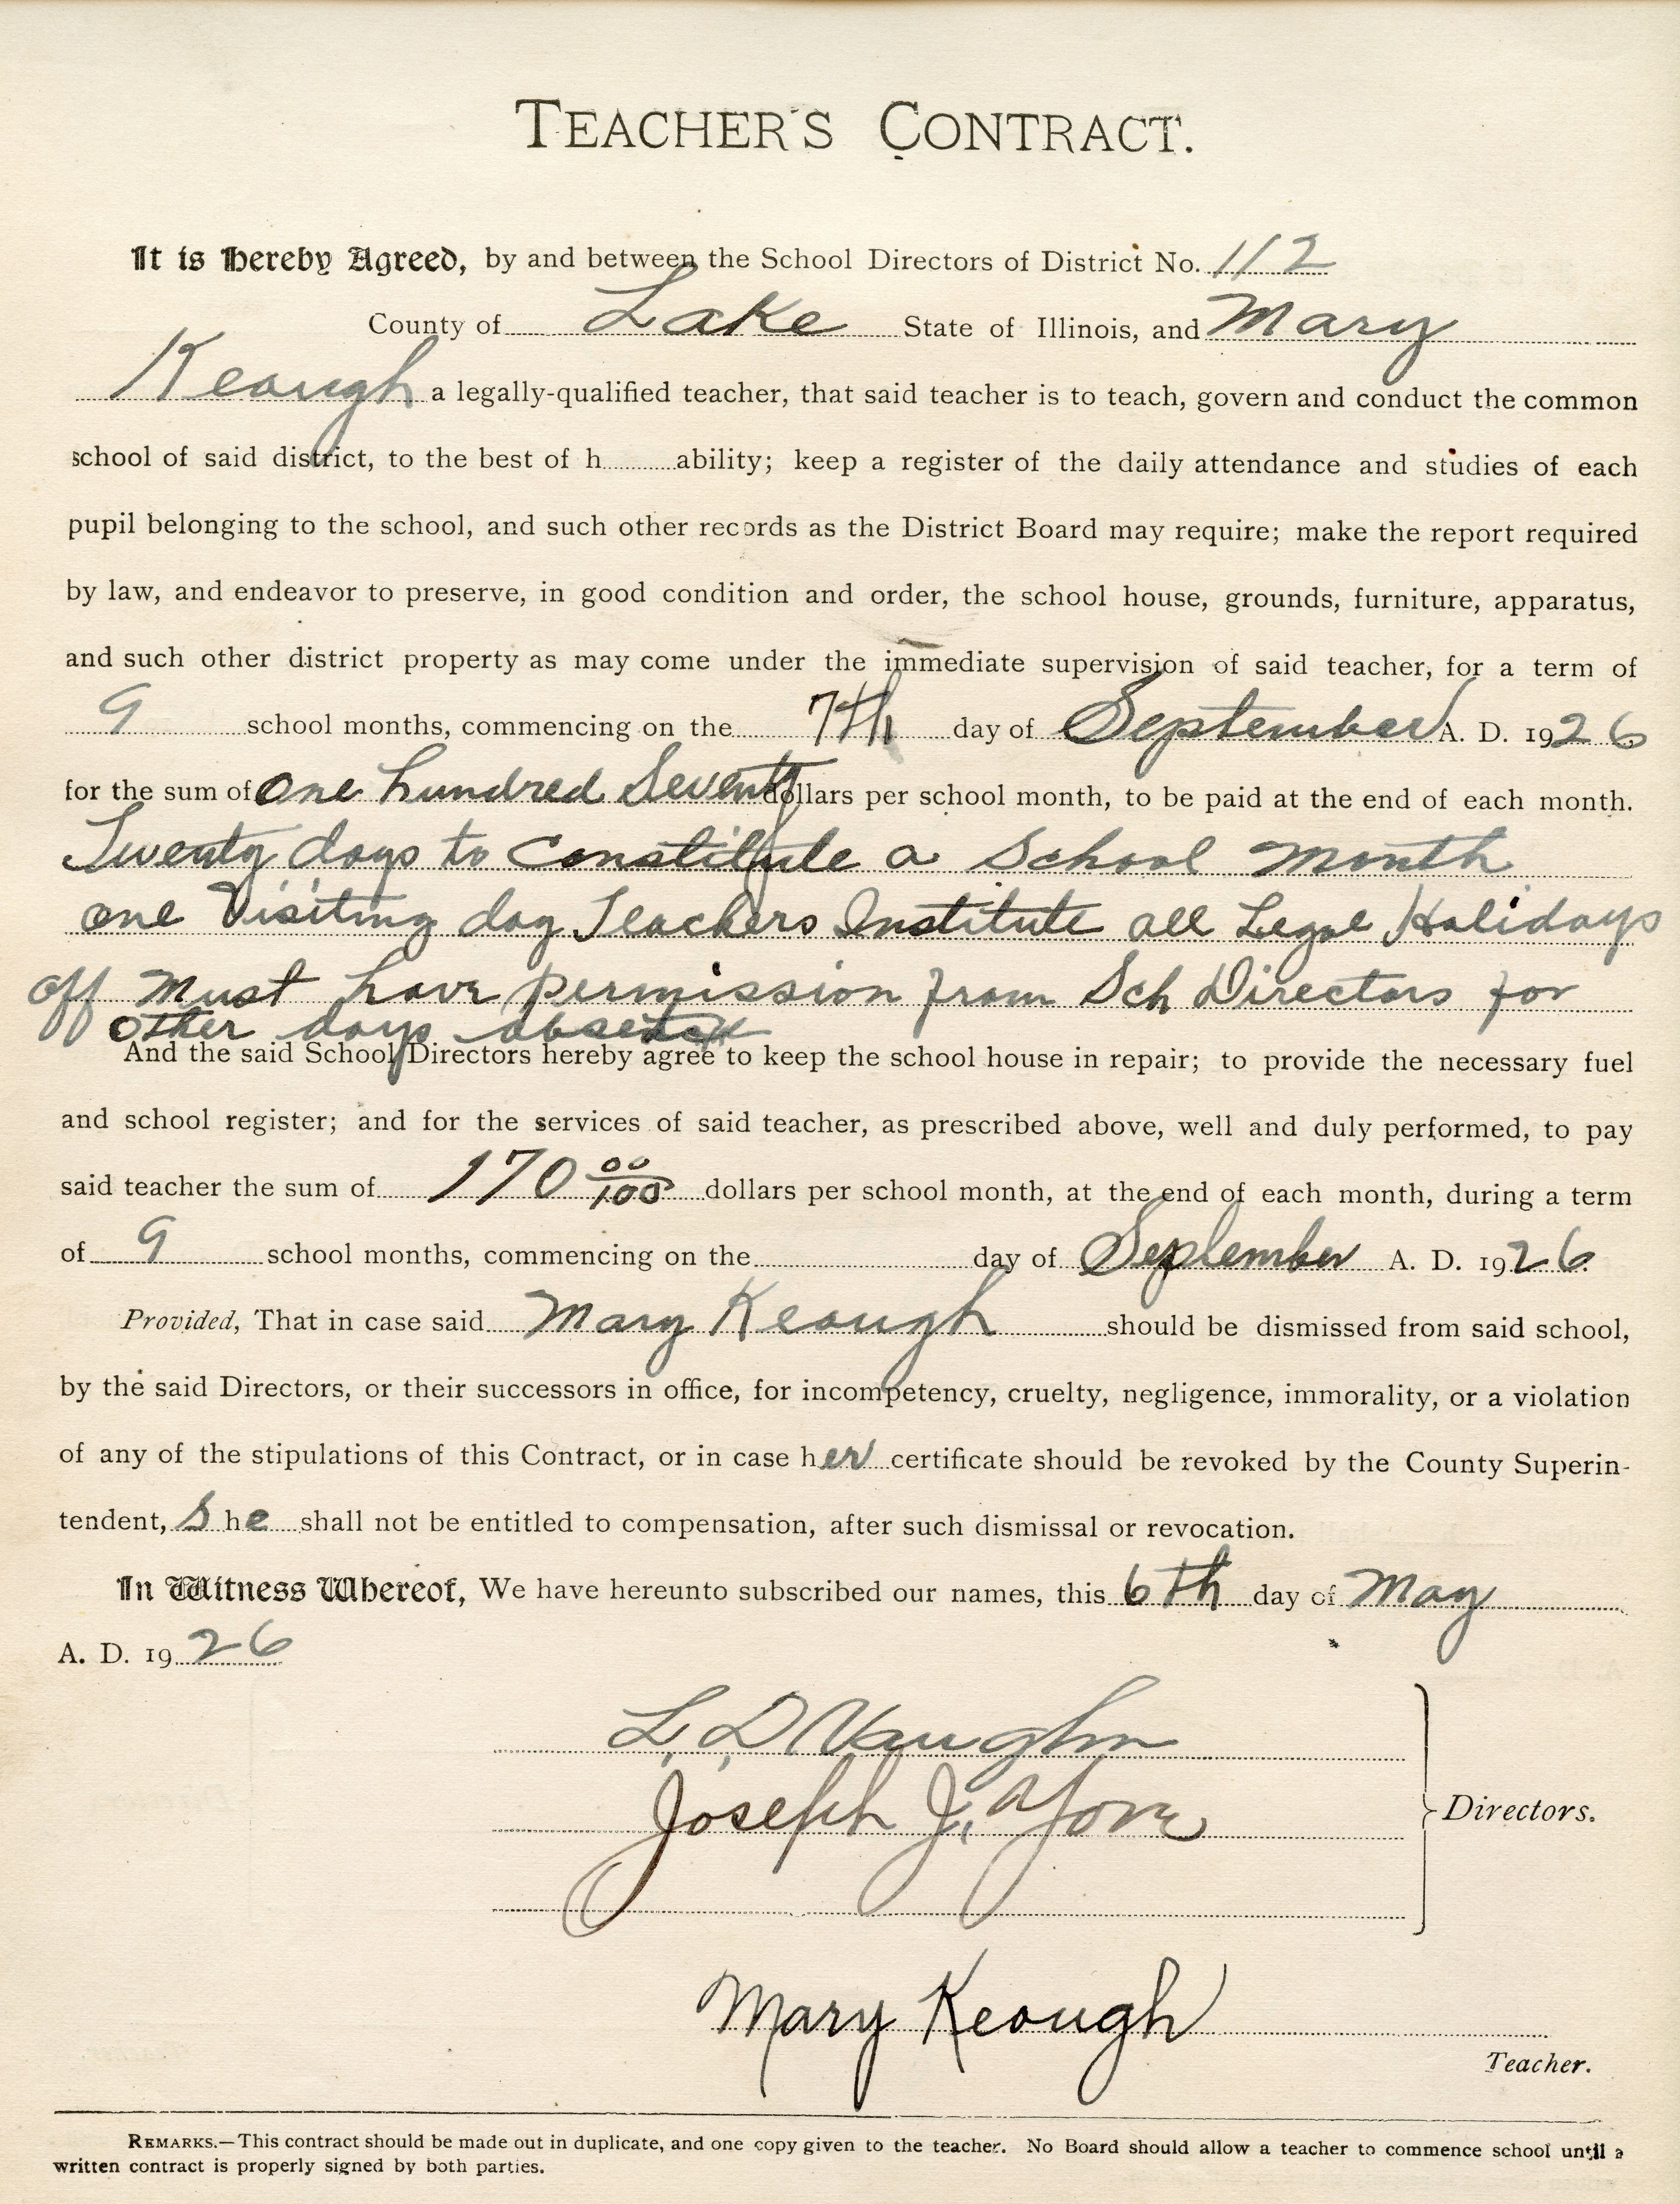 TEACHER'S CONTRACT.
It is Hereby Agreed, by and between the School Directors of District No. 112
County of Lake State of Illinois, and Mary
Keough a legally-qualified teacher, that said teacher is to teach, govern and conduct the common
school of said district, to the best of h ability; keep a register of the daily attendance and studies of each
pupil belonging to the school, and such other records as the District Board may require; make the report required
by law, and endeavor to preserve, in good condition and order, the school house, grounds, furniture, apparatus,
and such other district property as may come under the immediate supervision of said teacher, for a term of
9 school months, commencing on the 7th day of September A. D. 1926
for the sum of One hundred Seventy dollars per school month, to be paid at the end of each month.
Twenty days to Constitute a School Month
one Visiting day Teachers Institute all Legal Holidays
off Must have permission from Sch Directors for
other days
And the said School Directors hereby agree to keep the school house in repair; to provide the necessary fuel
and school register; and for the services of said teacher, as prescribed above, well and duly performed, to pay
said teacher the sum of 170 00/100 dollars per school month, at the end of each month, during a term
of 9 school months, commencing on the day of September A. D. 1926.
Provided, That in case said Mary Keough should be dismissed from said school,
by the said Directors, or their successors in office, for incompetency, cruelty, negligence, immorality, or a violation
of any of the stipulations of this Contract, or in case her certificate should be revoked by the County Superin-
tendent, She shall not be entitled to compensation, after such dismissal or revocation.
In Witness Whereof, We have hereunto subscribed our names, this 6th day of May
A. D. 1926
L. D. Vaughn
Joseph J. Yore
Directors.
Mary Keough
Teacher.
REMARKS.—This contract should be made out in duplicate, and one copy given to the teacher. No Board should allow a teacher to commence school until a
written contract is properly signed by both parties.